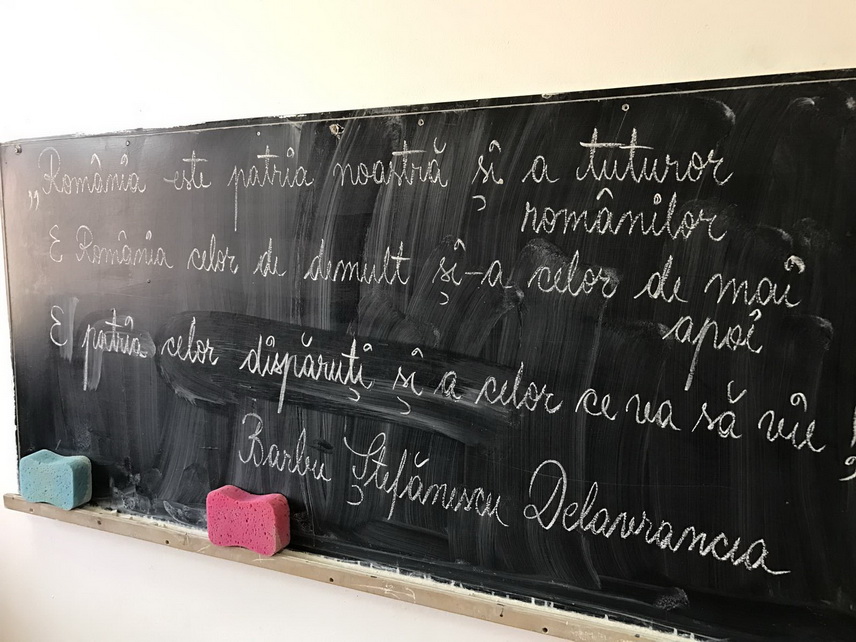 „România este patria noastră și a tuturor
românilor
E România celor de demult și-a celor de mai
apoi
E patria celor dispăruți și a celor ce va să vie!”
Barbu Ștefănescu Delavrancia